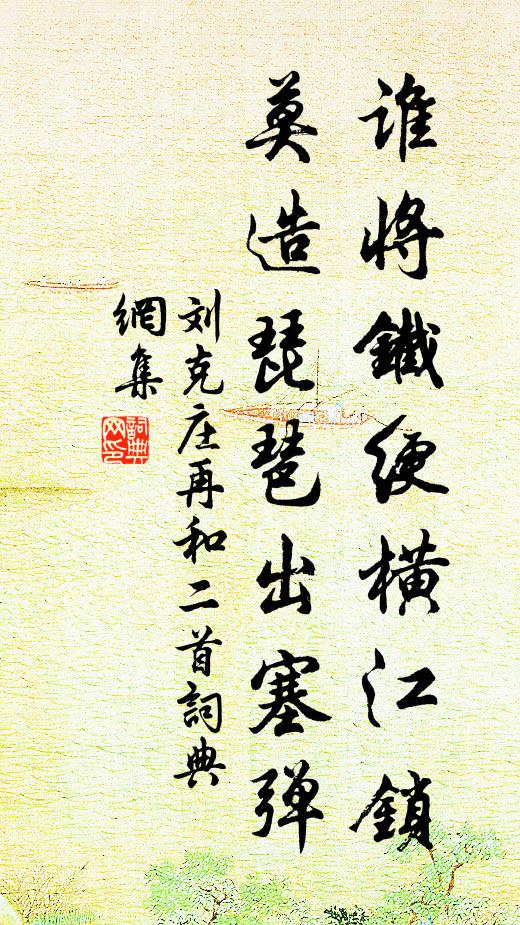 谁将鐵绠横江鎖
莫造琵琶出塞弹
刘克庄再和二首詞典
網集
詞典
网印